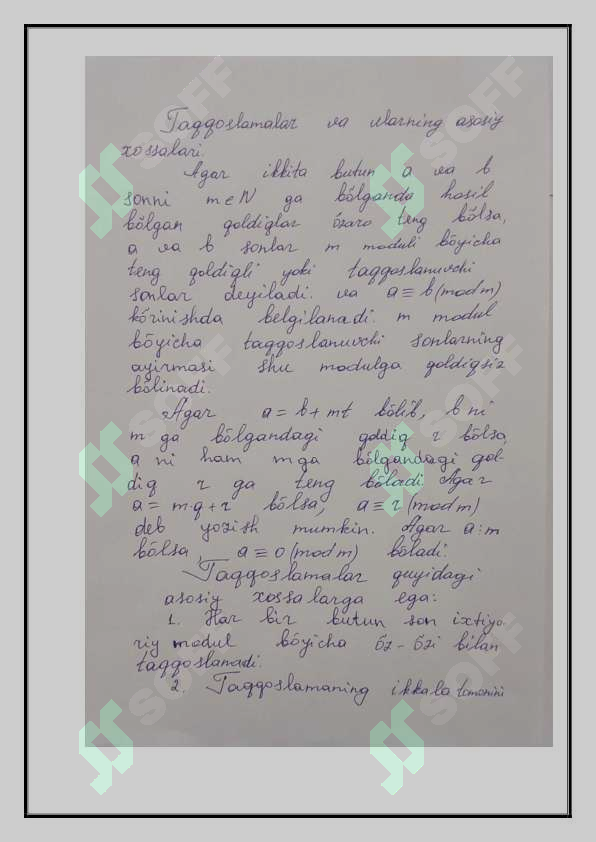 Taqqoslamalar va ularning asosiy
xossalari.
Agar ikkita butun a va b
sonni m∈N ga bõlganda hosil
bõlgan qoldiqlar õzaro teng bõlsa,
a va b sonlar m moduli bõyicha
teng qoldiqli yoki taqqoslanuvchi
sonlar deyiladi. va a≡b(mod m)
kõrinishda belgilanadi. m modul
bõyicha taqqoslanuvchi sonlarning
ayirmasi shu modulga qoldiqsiz
bõlinadi.
Agar a=b+mt bõlib, b ni
m ga bõlgandagi qoldiq r bõlsa,
a ni ham m ga bõlgandagi qol-
diq r ga teng bõladi. Agar
a=m·q+r bõlsa, a≡r(mod m)
deb yozish mumkin. Agar a:m
bõlsa, a≡0(mod m) bõladi.
Taqqoslamalar quyidagi
asosiy xossalarga ega:
1. Har bir butun son ixtiyo-
riy modul bõyicha õz-õzi bilan
taqqoslanadi.
2. Taqqoslamaning ikkala tomonini
SOFF
SOFF
SOFF
SOFF
SOFF
SOFF